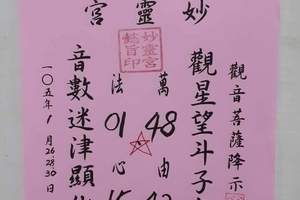 妙靈宮
觀音菩薩降示
觀星望斗子
萬由
48
法心
01
音數迷津顯
一〇五年1月26 28 30日
妙靈宮
懿旨印